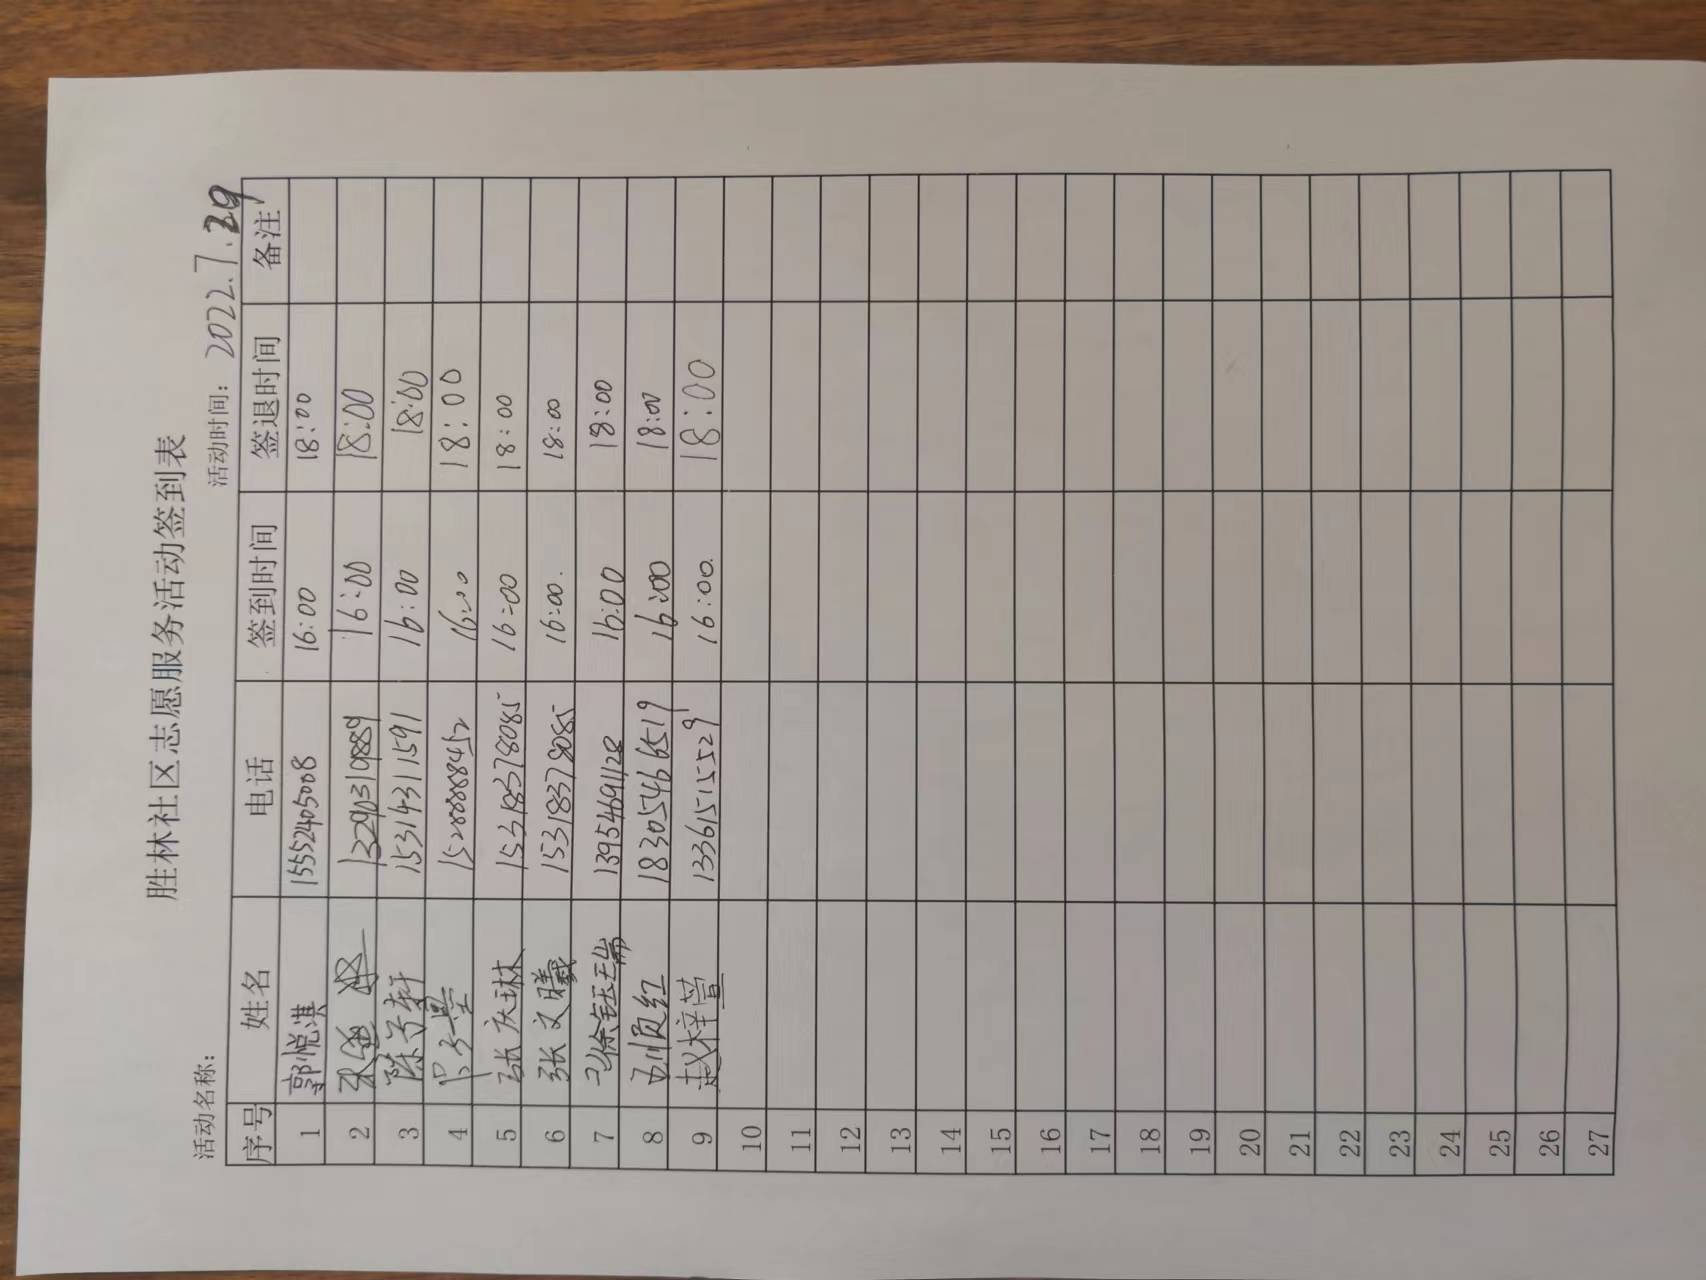 胜林社区志愿服务活动签到表
活动名称： 活动时间：2022.7.29
序号 姓名 电话 签到时间 签退时间 备注
1 郭悦淇 15552405008 16:00 18:00
2 16:00 18:00
3 陈子轩 15314311591 16:00 18:00
4 15288888452 16:00 18:00
5 张庆琳 15318378085 16:00 18:00
6 张文曦 15318378085 16:00. 18:00
7 徐钰瑞 13954691128 16:00 18:00
8 18305466519 16:00 18:00
9 赵梓萱 13361515529 16:00. 18:00
10
11
12
13
14
15
16
17
18
19
20
21
22
23
24
25
26
27